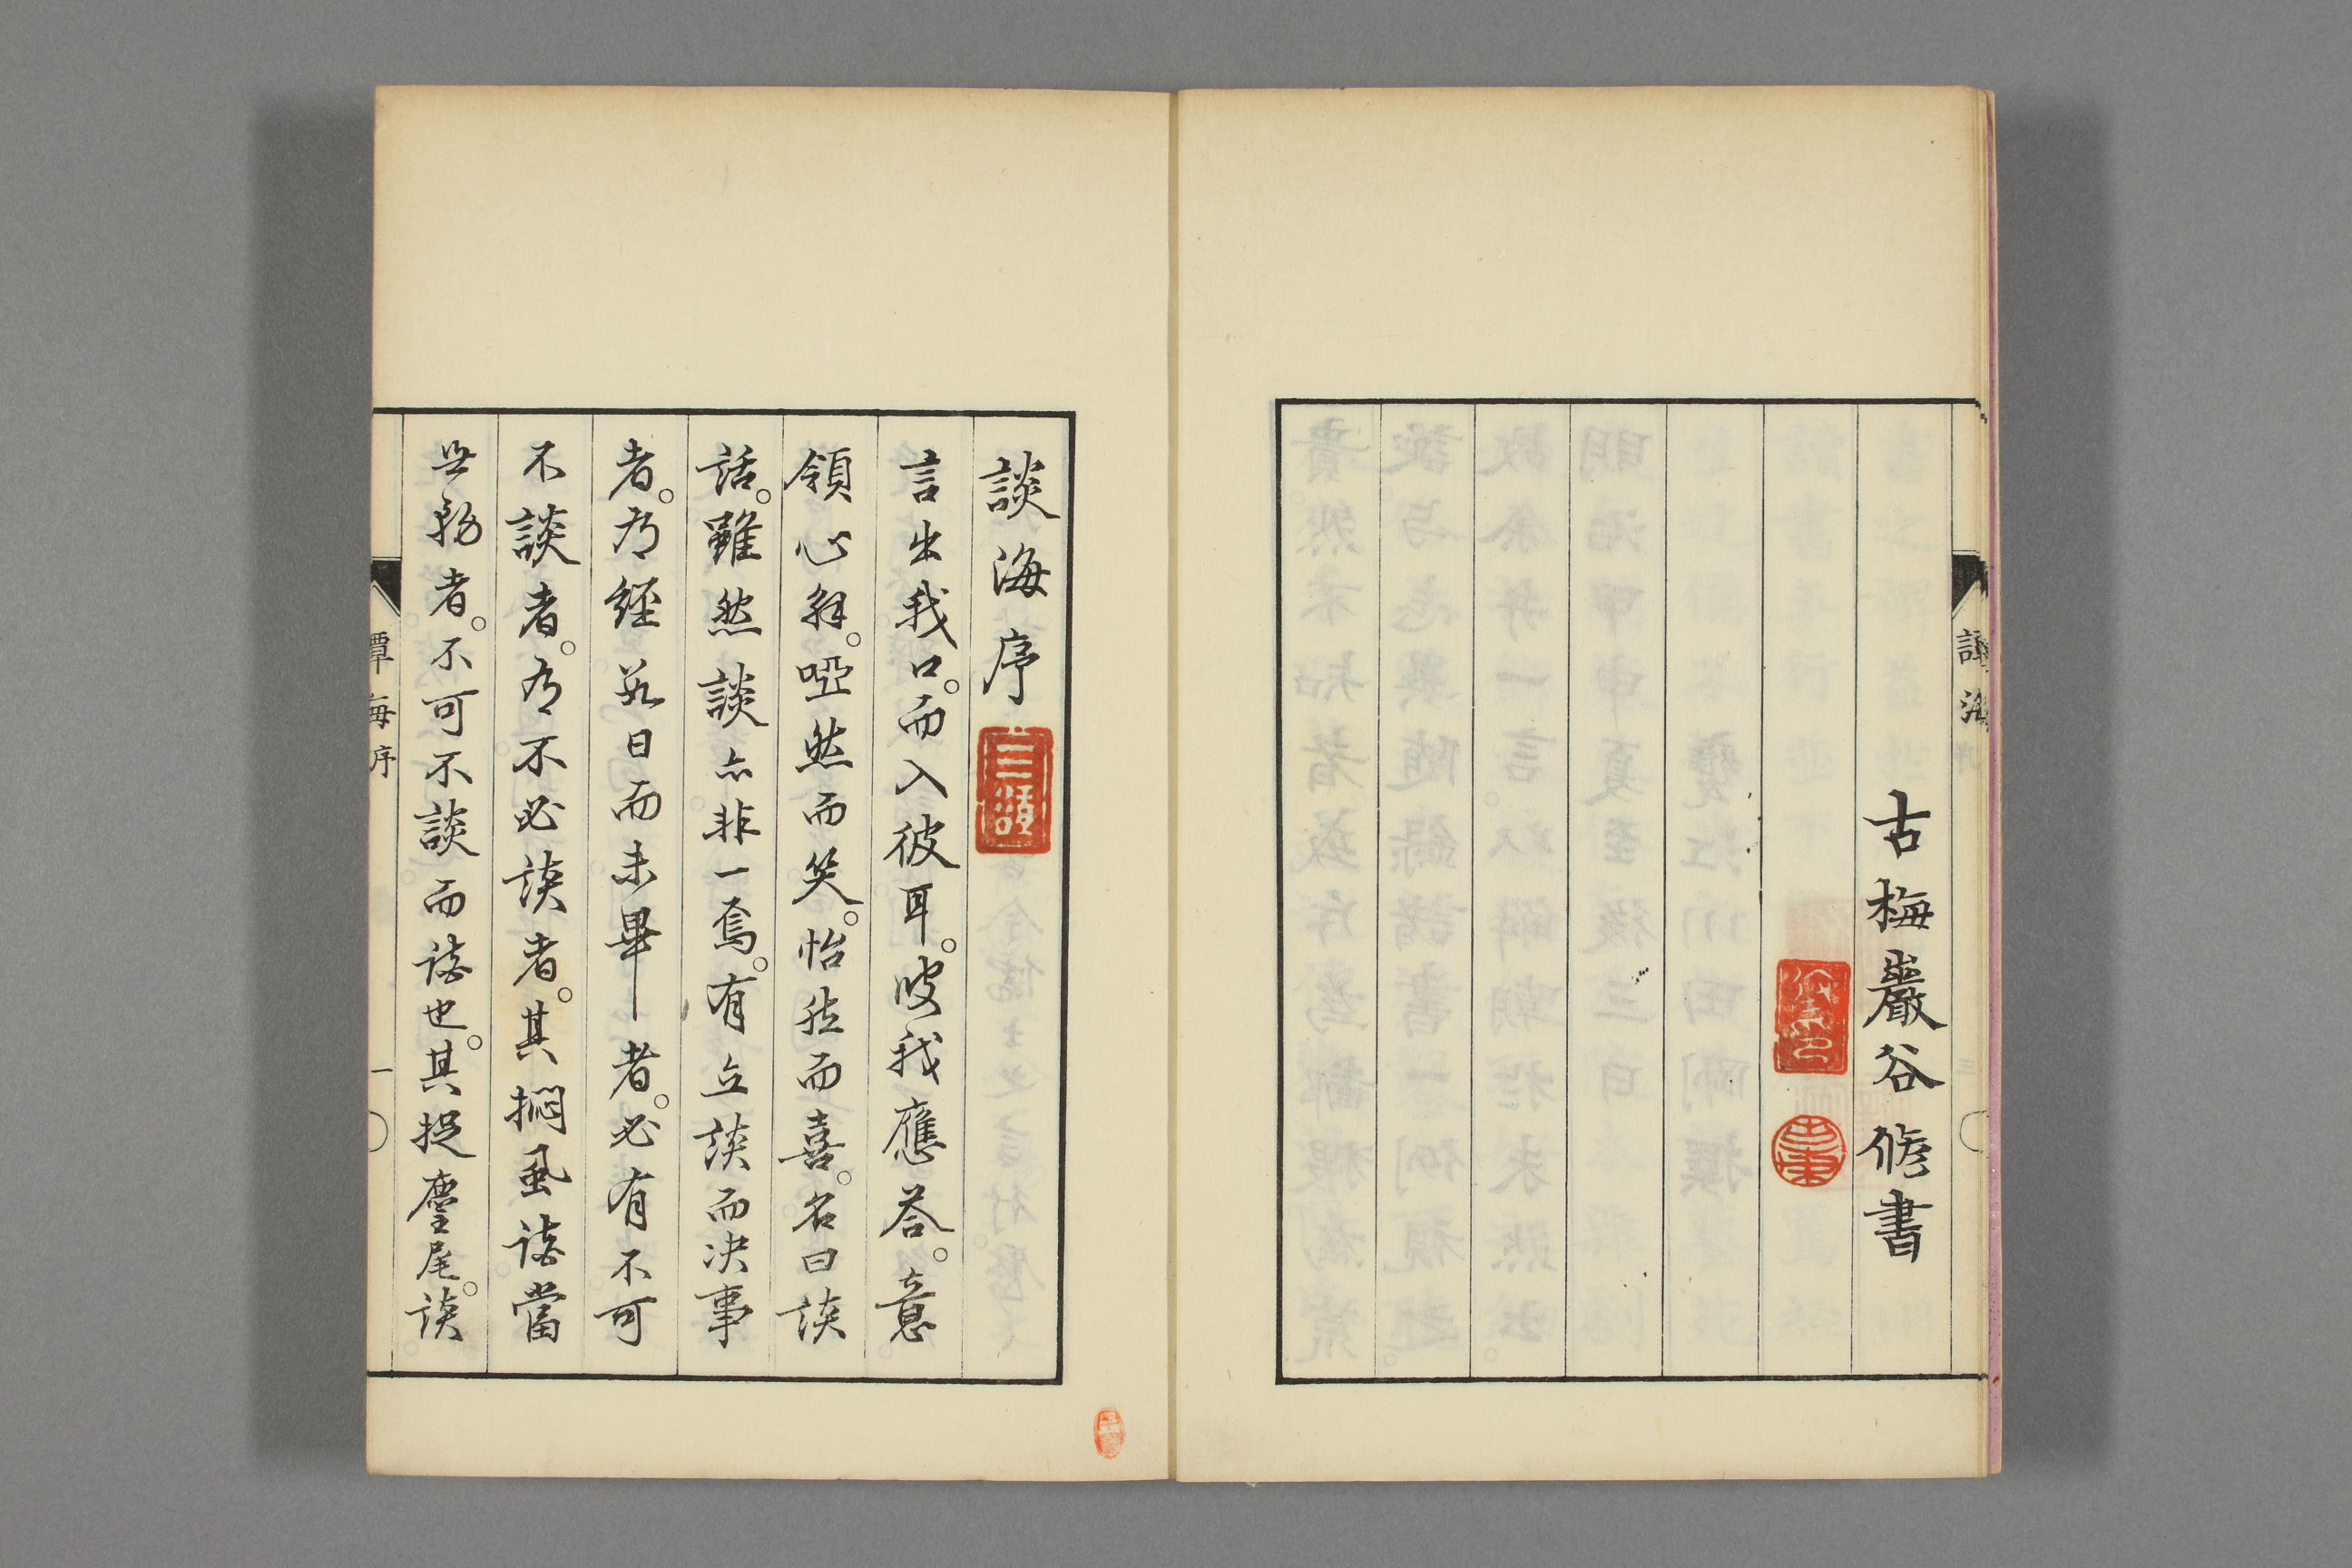 古梅巖谷脩書
譚海
談海序
言出我口。而入彼耳。彼我應答。意
領心解。啞然而笑。怡然而喜。名曰談
話。雖然談亦非一焉。有立談而決事
者。有經數日而未畢者。必有不可
不談者。有不必談者。其捫虱談當
世務者。不可不談而談也。其捉麈尾。談
譚海序
一